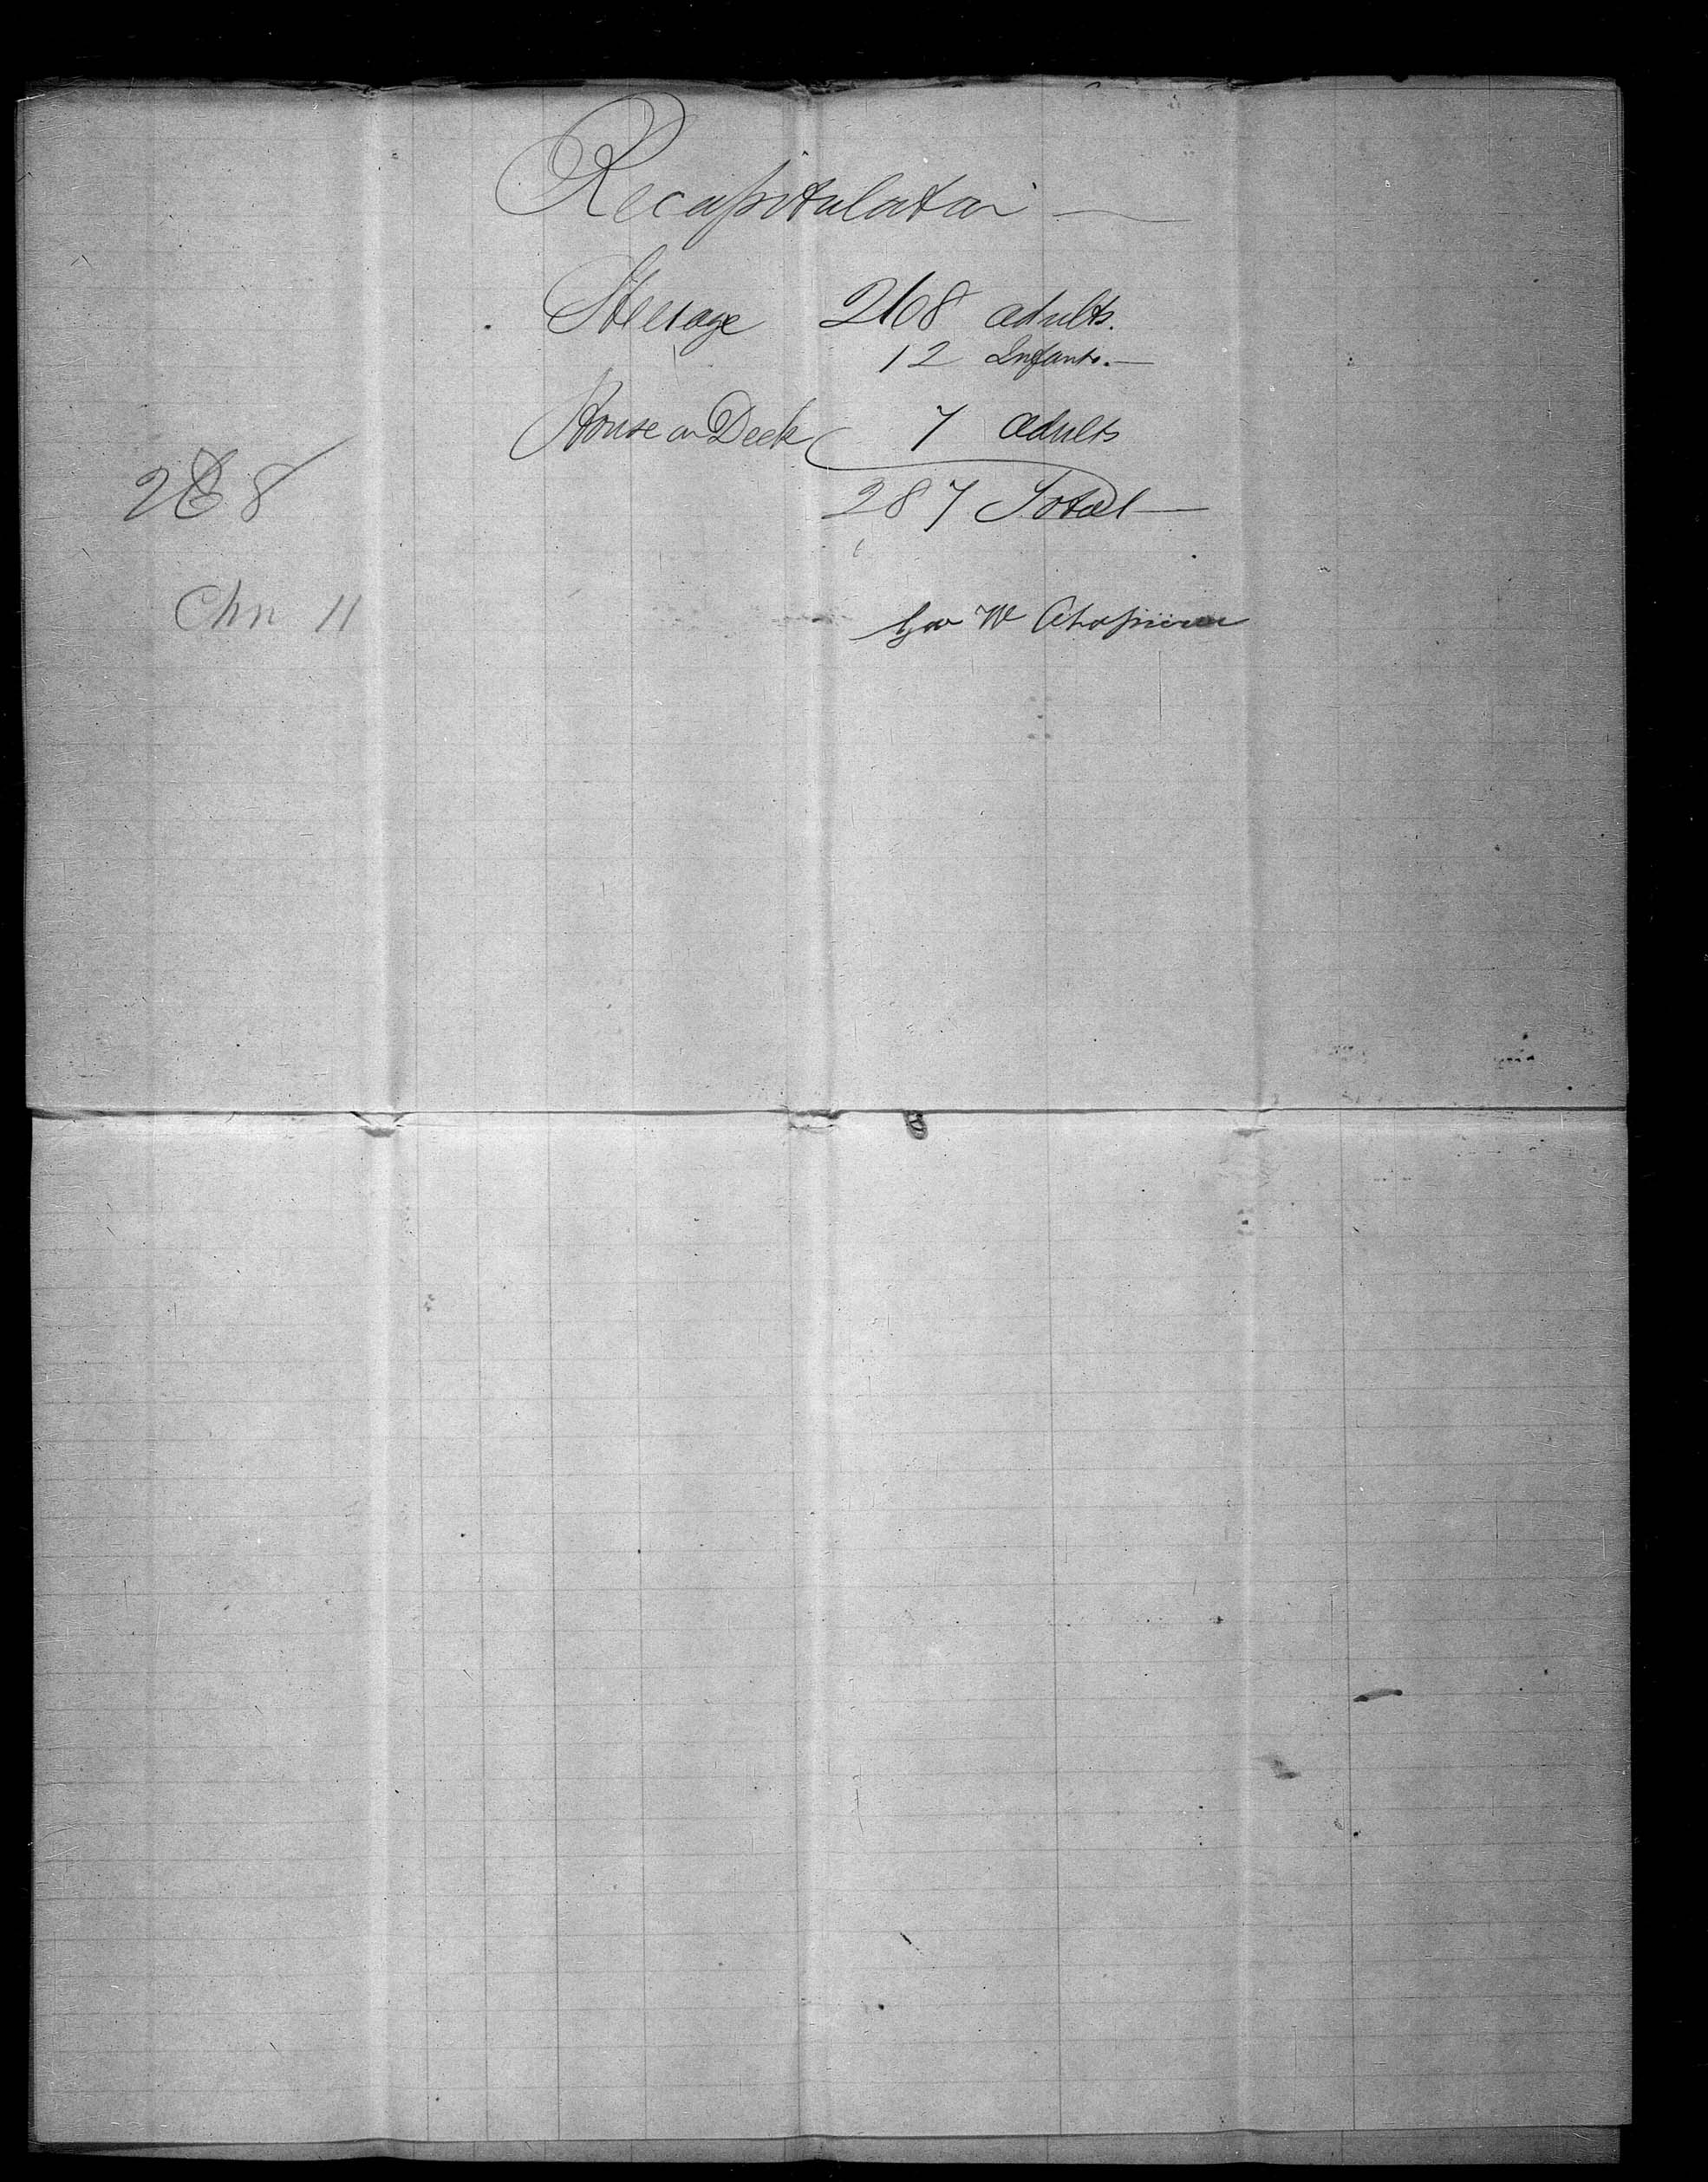 Recapitulation —
Steerage 268 adults.
12 Infants. —
House on Deck 7 adults
287 Total —
288
Chn 11
Geo W Chapman